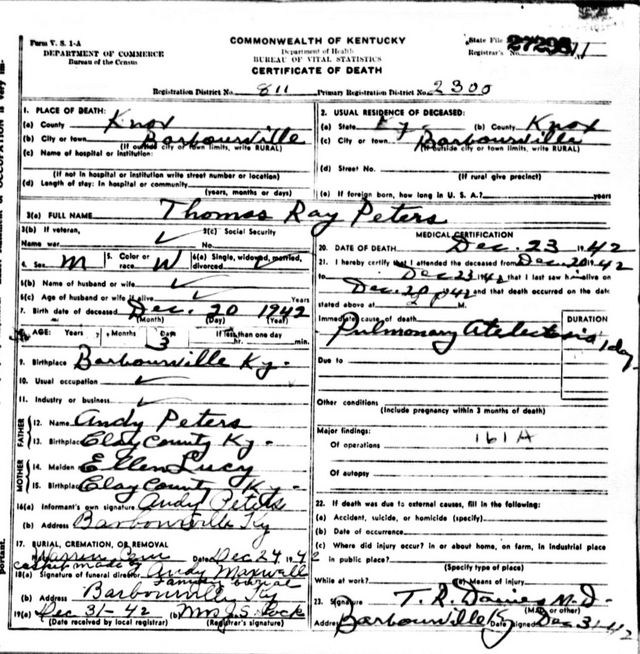 Form V. S. 1-A
DEPARTMENT OF COMMERCE
Bureau of the Census
COMMONWEALTH OF KENTUCKY
Department of Health
BUREAU OF VITAL STATISTICS
CERTIFICATE OF DEATH
State File No. 27298
Registrar's No.
Registration District No. 811 Primary Registration District No. 2300
1. PLACE OF DEATH:
(a) County Knox
(b) City or town Barbourville
(If outside city or town limits, write RURAL)
(c) Name of hospital or institution:
(If not in hospital or institution write street number or location)
(d) Length of stay: In hospital or community
(years, months or days)
2. USUAL RESIDENCE OF DECEASED:
(a) State Ky (b) County Knox
(c) City or town Barbourville
(If outside city or town limits, write RURAL)
(d) Street No.
(If rural give precinct)
(e) If foreign born, how long in U. S. A.? years
3(a) FULL NAME Thomas Ray Peters
3(b) If veteran,
Name war ✓
3(c) Social Security
No.
4. Sex M 5. Color or race W 6(a) Single, widowed, married, divorced ✓
6(b) Name of husband or wife ✓
6(c) Age of husband or wife if alive Years
7. Birth date of deceased Dec. 20 1942
(Month) (Day) (Year)
8. AGE: Years Months Days 3 If less than one day
hr. min.
9. Birthplace Barbourville Ky.
10. Usual occupation ✓
11. Industry or business ✓
FATHER
12. Name Andy Peters
13. Birthplace Clay County Ky.
MOTHER
14. Maiden Ellen Lucy
15. Birthplace Clay County Ky.
16(a) Informant's own signature Andy Peters
(b) Address Barbourville Ky
17. BURIAL, CREMATION, OR REMOVAL
Date Dec 24 1942
casket made by
18(a) Signature of funeral director Andy Maxwell
family burial
(b) Address Barbourville Ky
19(a) Dec 31-42 (b) Mrs J. S. Lock
(Date received by local registrar) (Registrar's signature)
MEDICAL CERTIFICATION
20. DATE OF DEATH Dec. 23 1942
21. I hereby certify that I attended the deceased from Dec 20 1942
to Dec 23 1942 that I last saw him alive on
Dec 20 1942 and that death occurred on the date
stated above at M.
DURATION
Immediate cause of death
Pulmonary Atelectasis 1 day
Due to
Other conditions
(Include pregnancy within 3 months of death)
Major findings:
Of operations 161A
Of autopsy
22. If death was due to external causes, fill in the following:
(a) Accident, suicide, or homicide (specify)
(b) Date of occurrence
(c) Where did injury occur? In or about home, on farm, in industrial place
in public place?
(Specify type of place)
While at work? (e) Means of injury
23. Signature T. R. Davies M.D.
(MD or other)
Address Barbourville Ky Date signed Dec 31 42